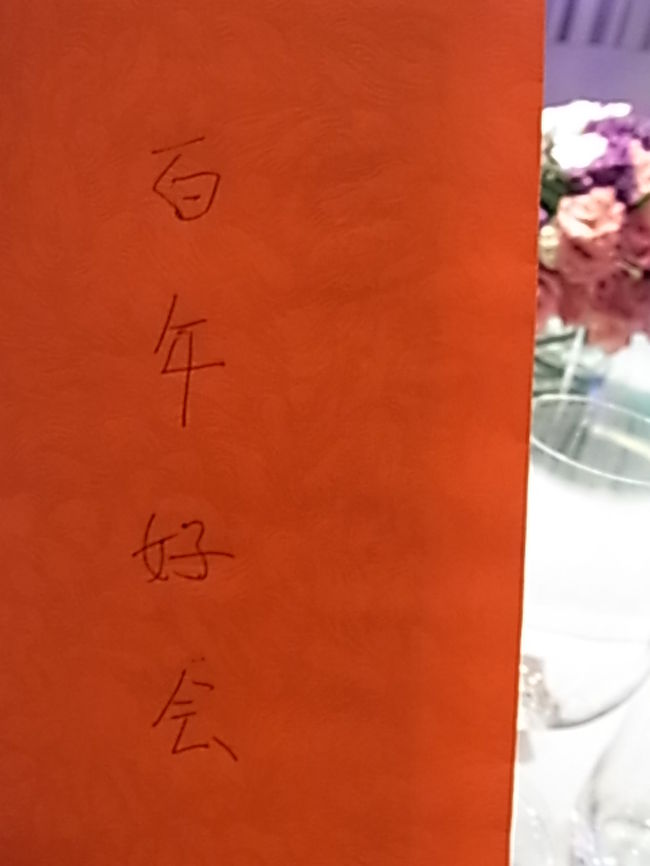 百年好会